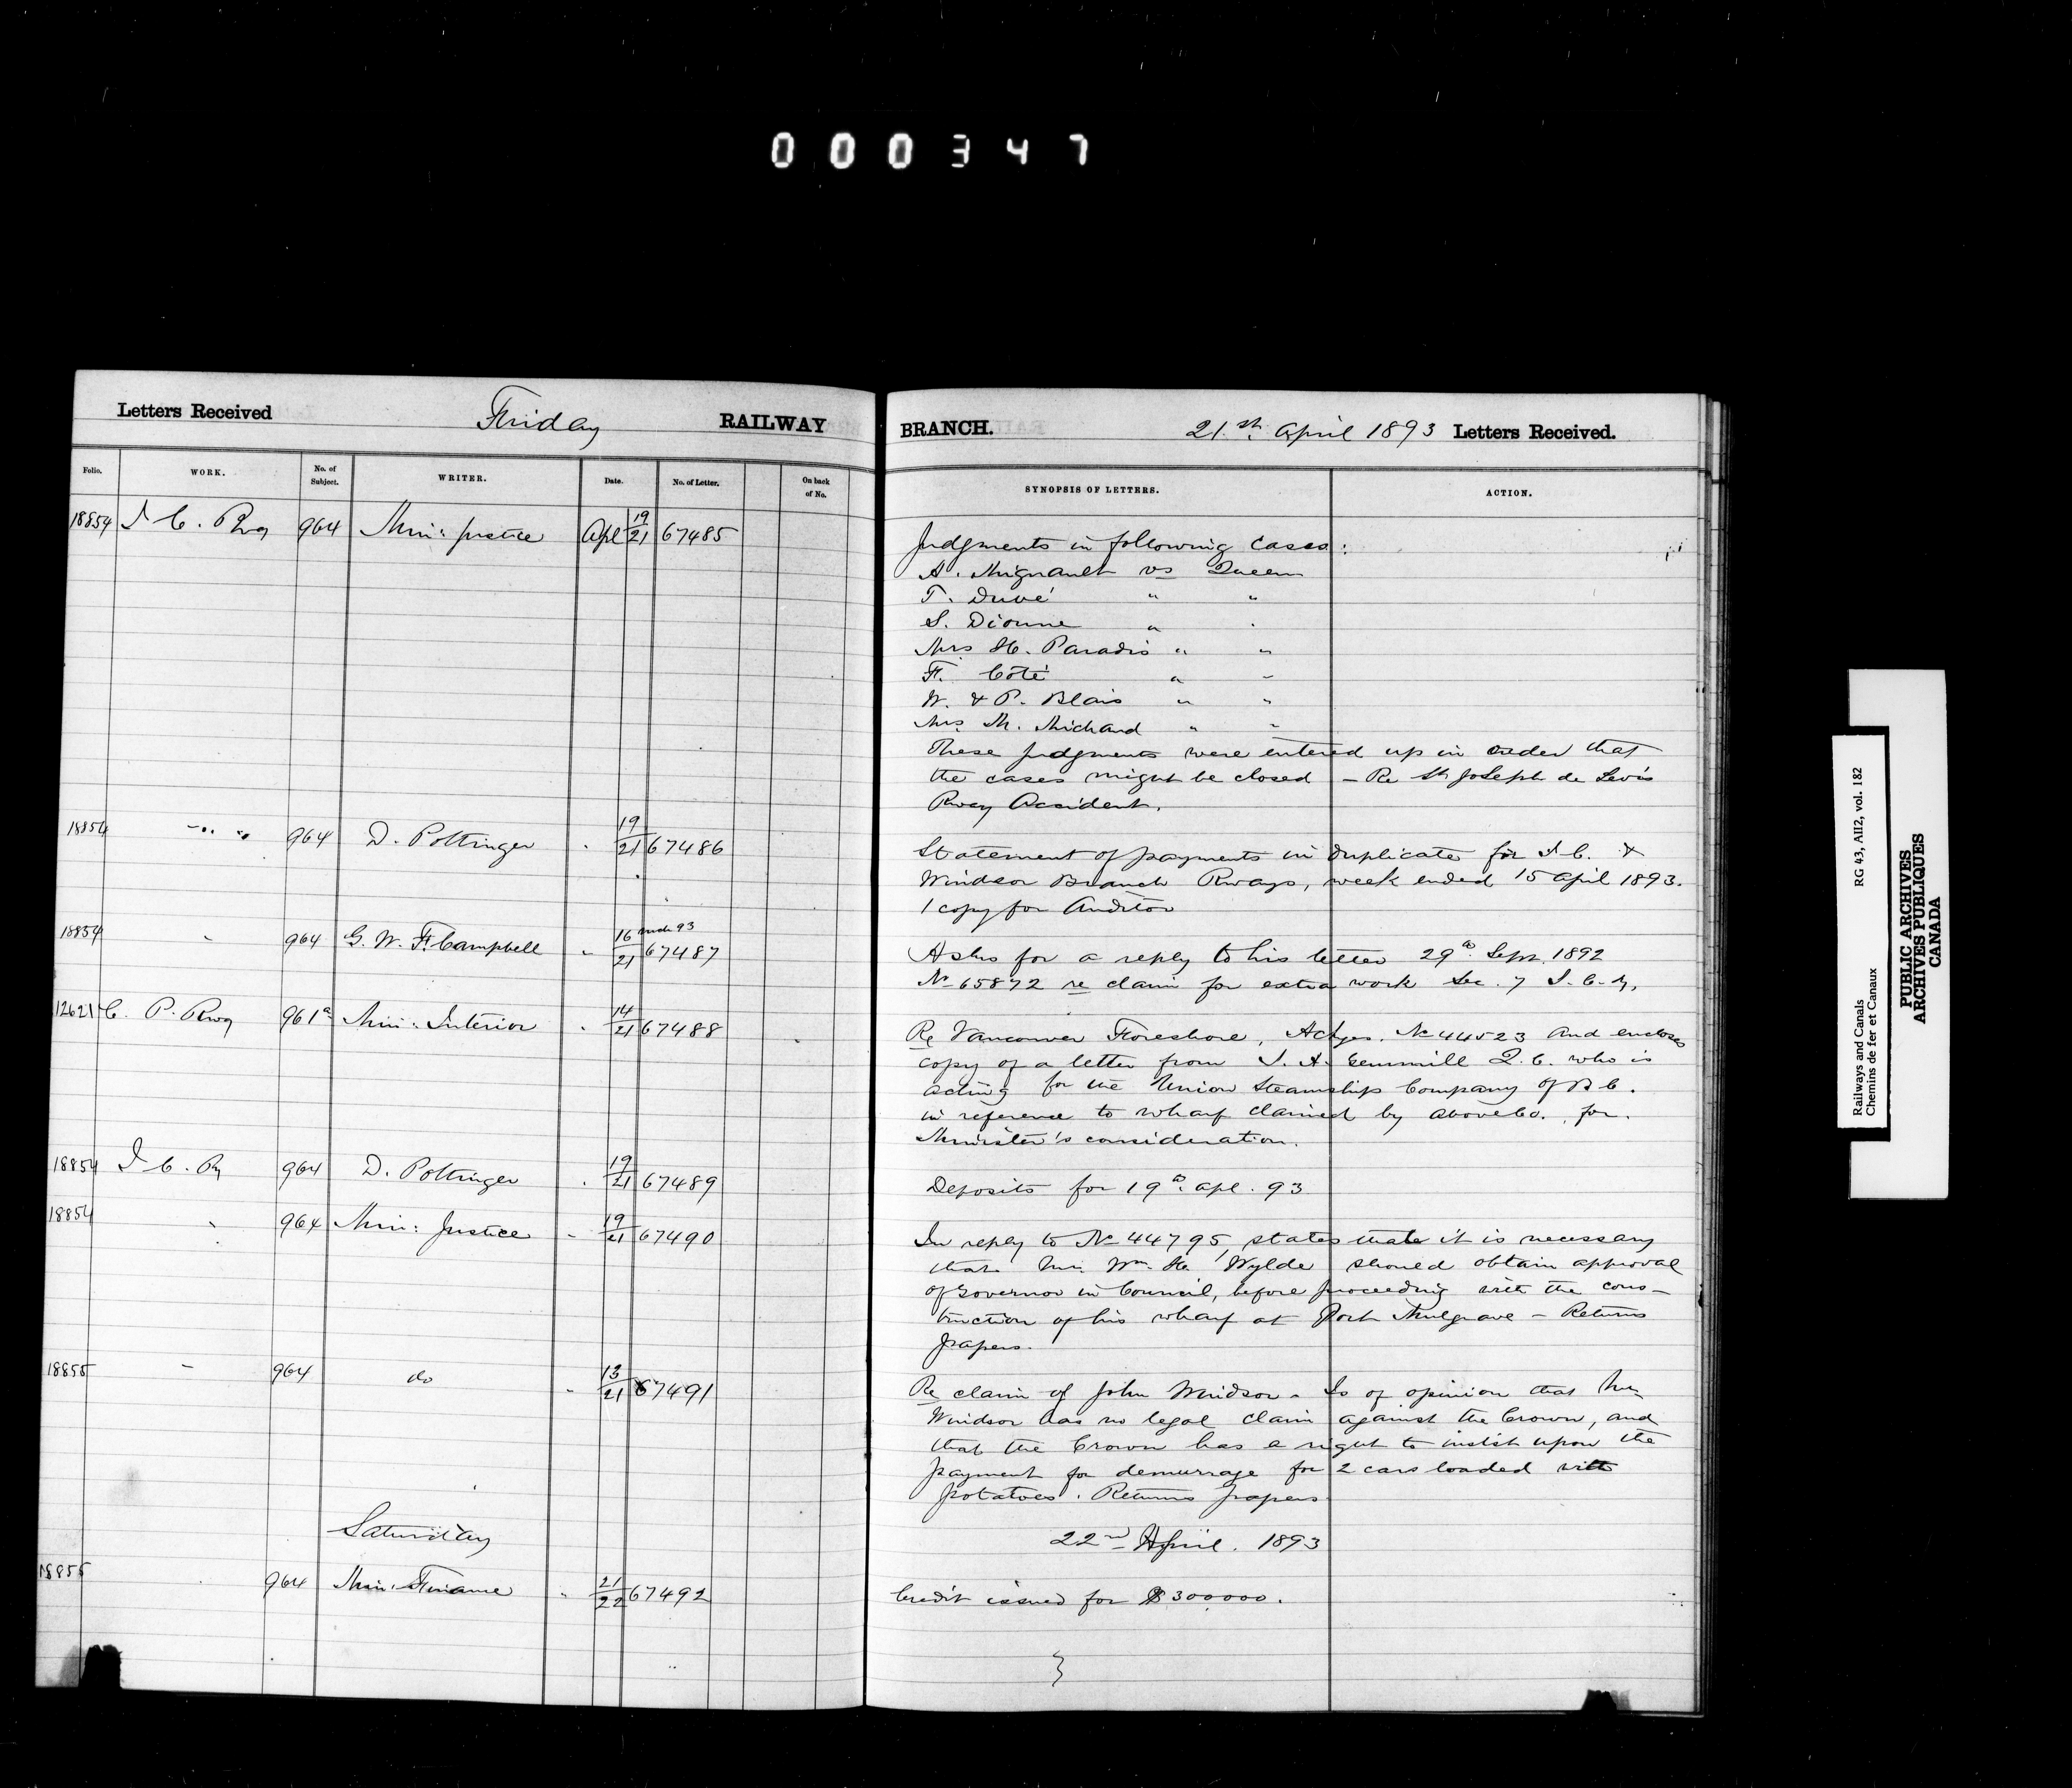 000347
Letters Received Friday RAILWAY
Folio. WORK. No. of Subject. WRITER. Date. No. of Letter. On back of No.
18854 I. C. Rwy 964 Min: Justice Apl 19/21 67485
18854 " " " 964 D. Pottinger " 19/21 67486
18854 " 964 G. W. F. Campbell " 16 mch 93/21 67487
12621 C. P. Rwy 961a Min: Interior " 14/21 67488
18854 I. C. Ry 964 D. Pottinger " 19/21 67489
18854 " 964 Min: Justice " 19/21 67490
18855 " 964 do " 13/21 67491
Saturday
18855 964 Min: Finance " 21/22 67492
BRANCH. 21.st April 1893 Letters Received.
SYNOPSIS OF LETTERS. ACTION.
Judgments in following cases:
A. Mignault vs Queen
T. Dubé " "
S. Dionne " "
Mrs H. Paradis " "
F. Côté " "
W. & P. Blais " "
Mrs M. Michaud " "
These judgments were entered up in order that
the cases might be closed – Re St Joseph de Levis
Rway Accident.
Statement of payments in duplicate for I. C. &
Windsor Branch Rways, week ended 15 April 1893.
1 copy for Auditor
Asks for a reply to his letter 29th Sept. 1892
No 65872 re claim for extra work Sec. 7 I. C. Ry.
Re Vancouver Foreshore, Ackges. No 44523 and encloses
copy of a letter from J. A. Gemmill Q. C. who is
acting for the Union Steamship Company of B C.
in reference to wharf claimed by above Co., for
Minister's consideration.
Deposits for 19th apl. 93
In reply to No 44795, states that it is necessary
that Mr. Wm. H. Wylde should obtain approval
of Governor in Council, before proceeding with the cons-
truction of his wharf at Port Mulgrave – Returns
papers.
Re claim of John Windsor – Is of opinion that Mr.
Windsor has no legal claim against the Crown, and
that the Crown has a right to insist upon the
payment for demurrage for 2 cars loaded with
potatoes. Returns papers
22nd April. 1893
Credit issued for $300000.
Railways and Canals RG 43, AII2, vol. 182
Chemins de fer et Canaux
PUBLIC ARCHIVES
ARCHIVES PUBLIQUES
CANADA